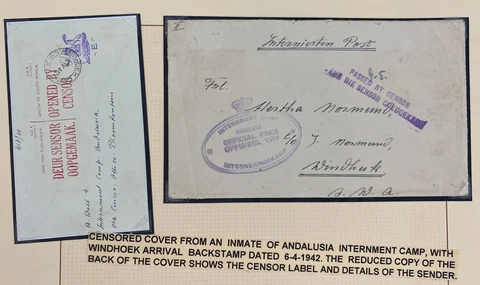 DEUR SENSOR
OOPGEMAAK
OPENED BY
CENSOR
UNION OF SOUTH AFRICA.
Internment Camp, Andalusia
II
Internierten Post
PASSED BY CENSOR
DEUR DIE SENSOR GOEDGEKEUR
Frl.
Hertha Normund,
INTERNMENT CAMP
OFFICIAL FREE
OFFISIEEL VRY
INTERNERINGSKAMP
c/o J. Normund,
Windhuk
S. W. A.
CENSORED COVER FROM AN INMATE OF ANDALUSIA INTERNMENT CAMP, WITH
WINDHOEK ARRIVAL BACKSTAMP DATED 6-4-1942. THE REDUCED COPY OF THE
BACK OF THE COVER SHOWS THE CENSOR LABEL AND DETAILS OF THE SENDER.